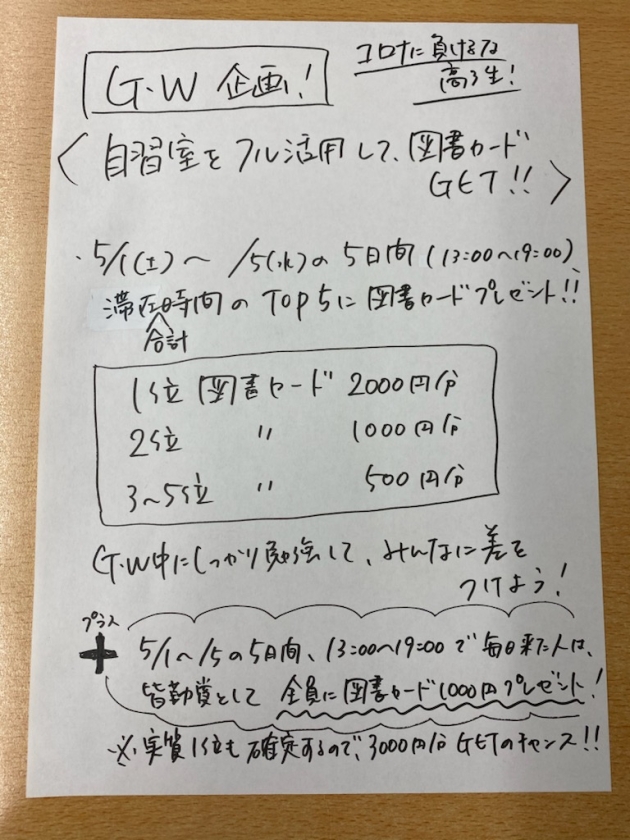 G.W 企画!
コロナに負けるな
高3生!
〈自習室をフル活用して、図書カード
GET!!〉
・5/1(土)〜/5(水)の5日間(13:00〜19:00)、
滞在時間のTOP5に図書カードプレゼント!!
合計
1位 図書カード 2000円分
2位 〃 1000円分
3〜5位 〃 500円分
G.W中にしっかり勉強して、みんなに差を
つけよう!
プラス
+ 5/1〜/5の5日間、13:00〜19:00で毎日来た人は、
皆勤賞として 全員に図書カード1000円プレゼント!
※実質1位も確定するので、3000円分GETのチャンス!!